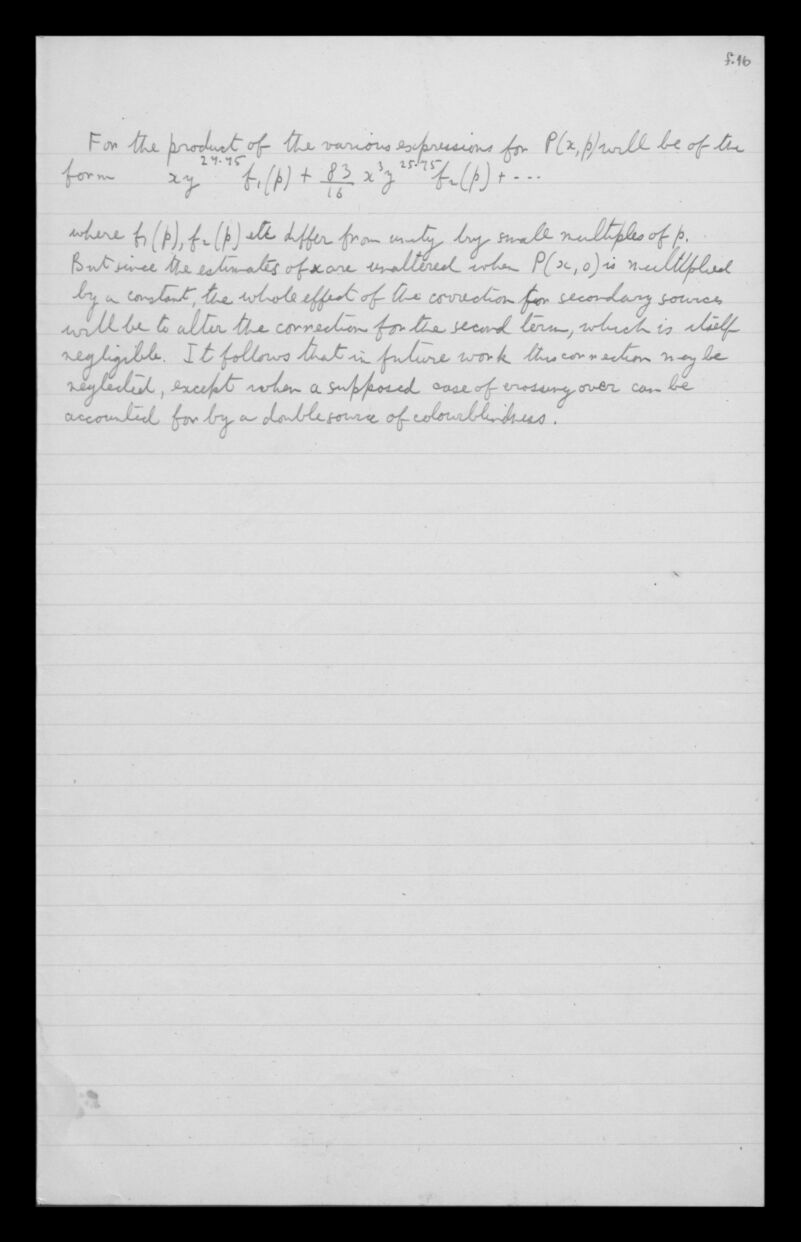 f.16
For the product of the various expressions for P(x,p) will be of the
form xy^24.75 f₁(p) + 83/16 x³y^25.75 f₂(p) + ...
where f₁(p), f₂(p) etc differ from unity by small multiples of p.
But since the estimates of x are unaltered when P(x,0) is multiplied
by a constant, the whole effect of the correction for secondary sources
will be to alter the correction for the second term, which is itself
negligible. It follows that in future work this correction may be
neglected, except when a supposed case of crossing over can be
accounted for by a double source of colourblindness.